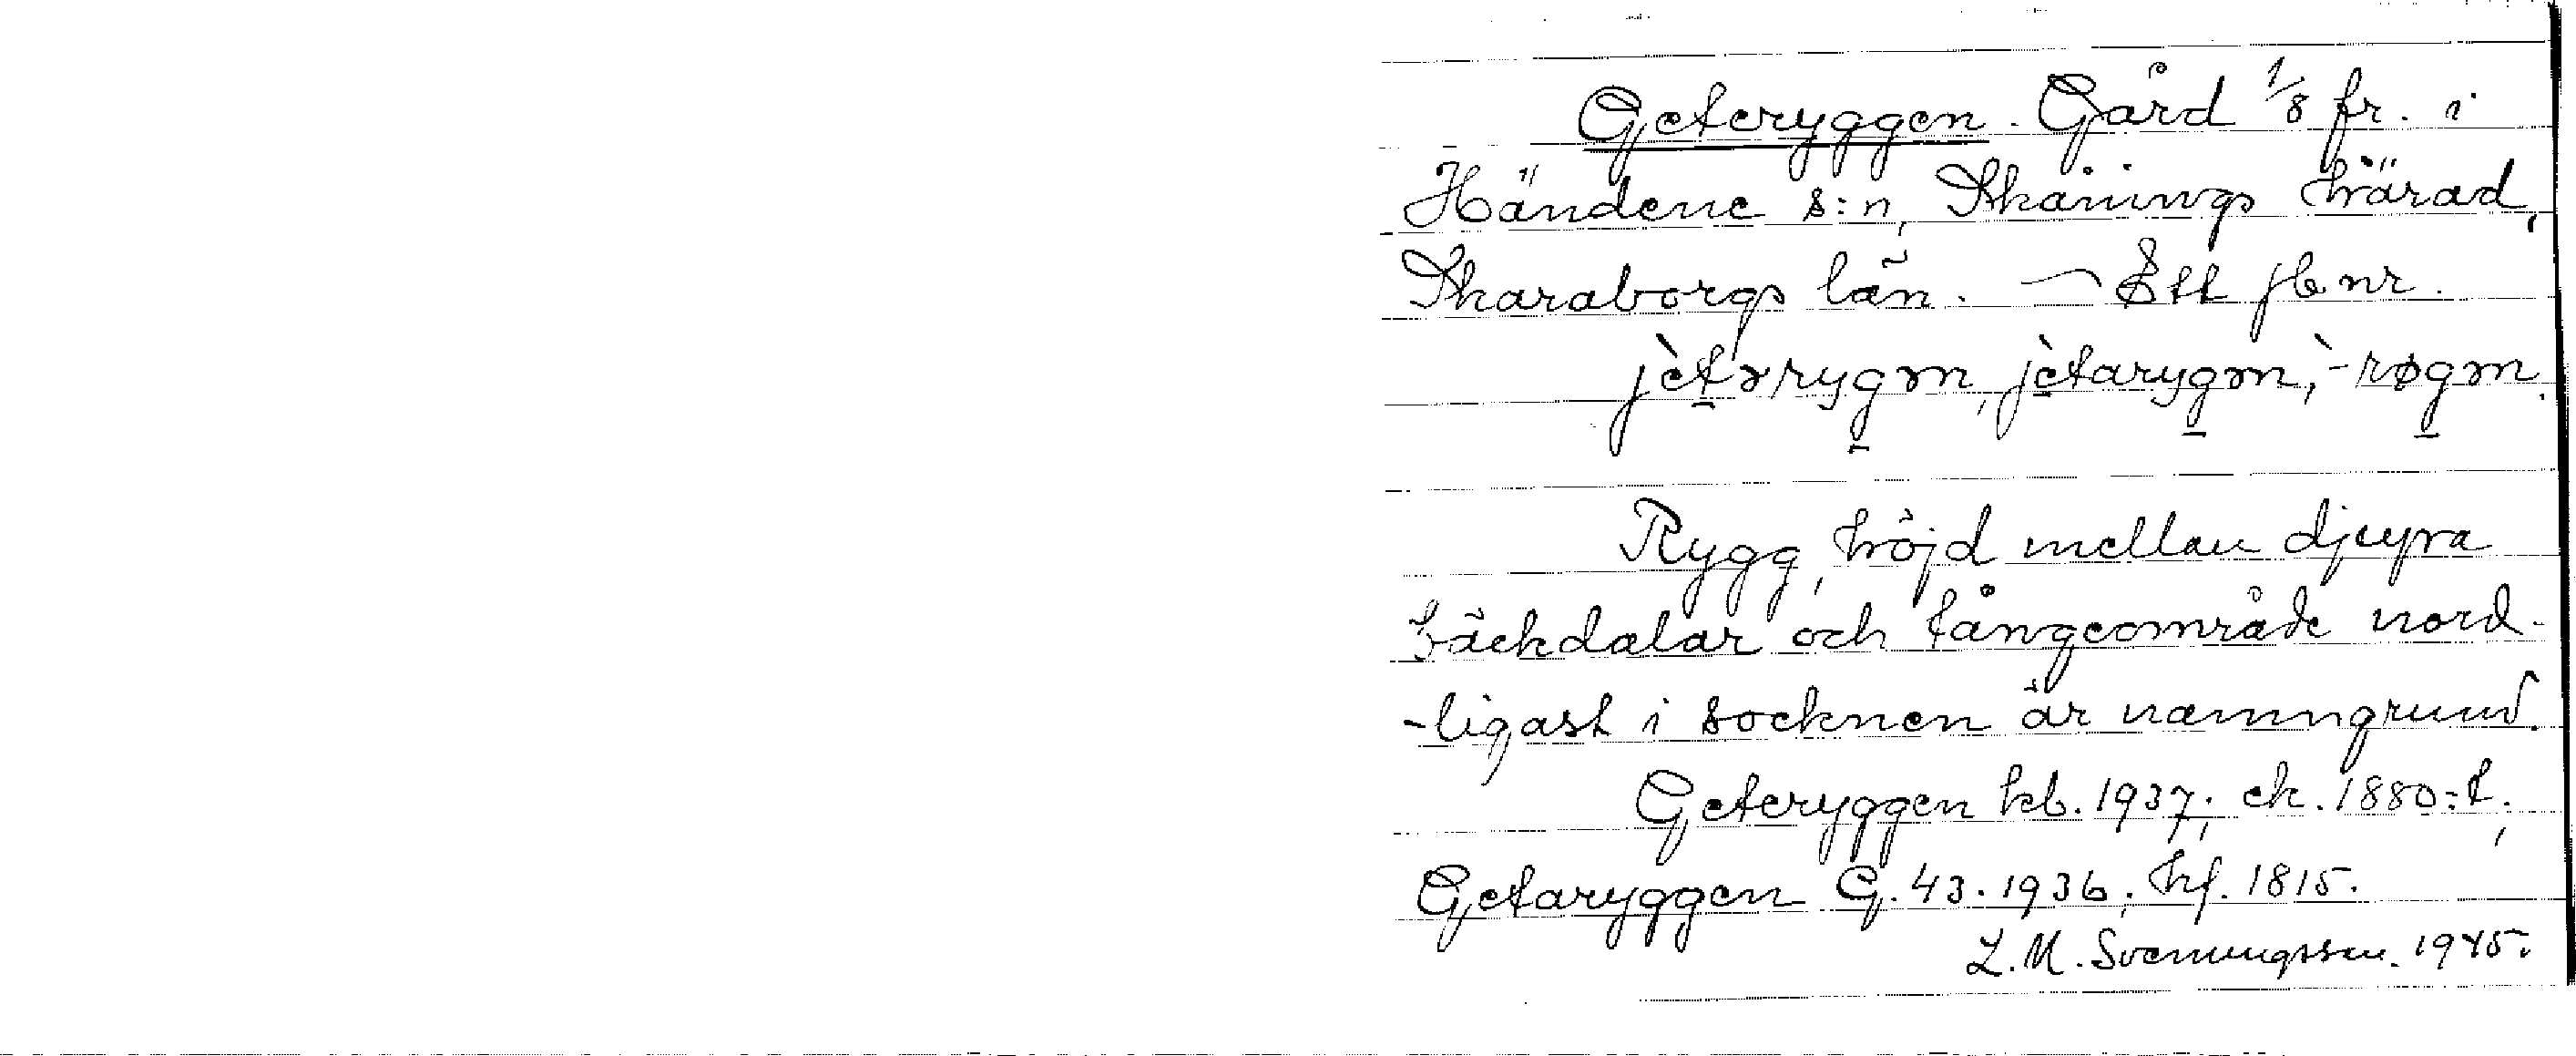 Geteryggen. Gård 1/8 fr. i
Händene s:n, Skånings härad,
Skaraborgs län. — Ett jbnr.
jètərygən, jètarygən, -røgən.
Rygg, höjd mellan djupa
bäckdalar och fångeområde nord-
-ligast i socknen är namngrund.
Geteryggen kb. 1937; ek. 1880:t;
Getaryggen G. 43. 1936; hf. 1815.
L. M. Svenungsson. 1945.